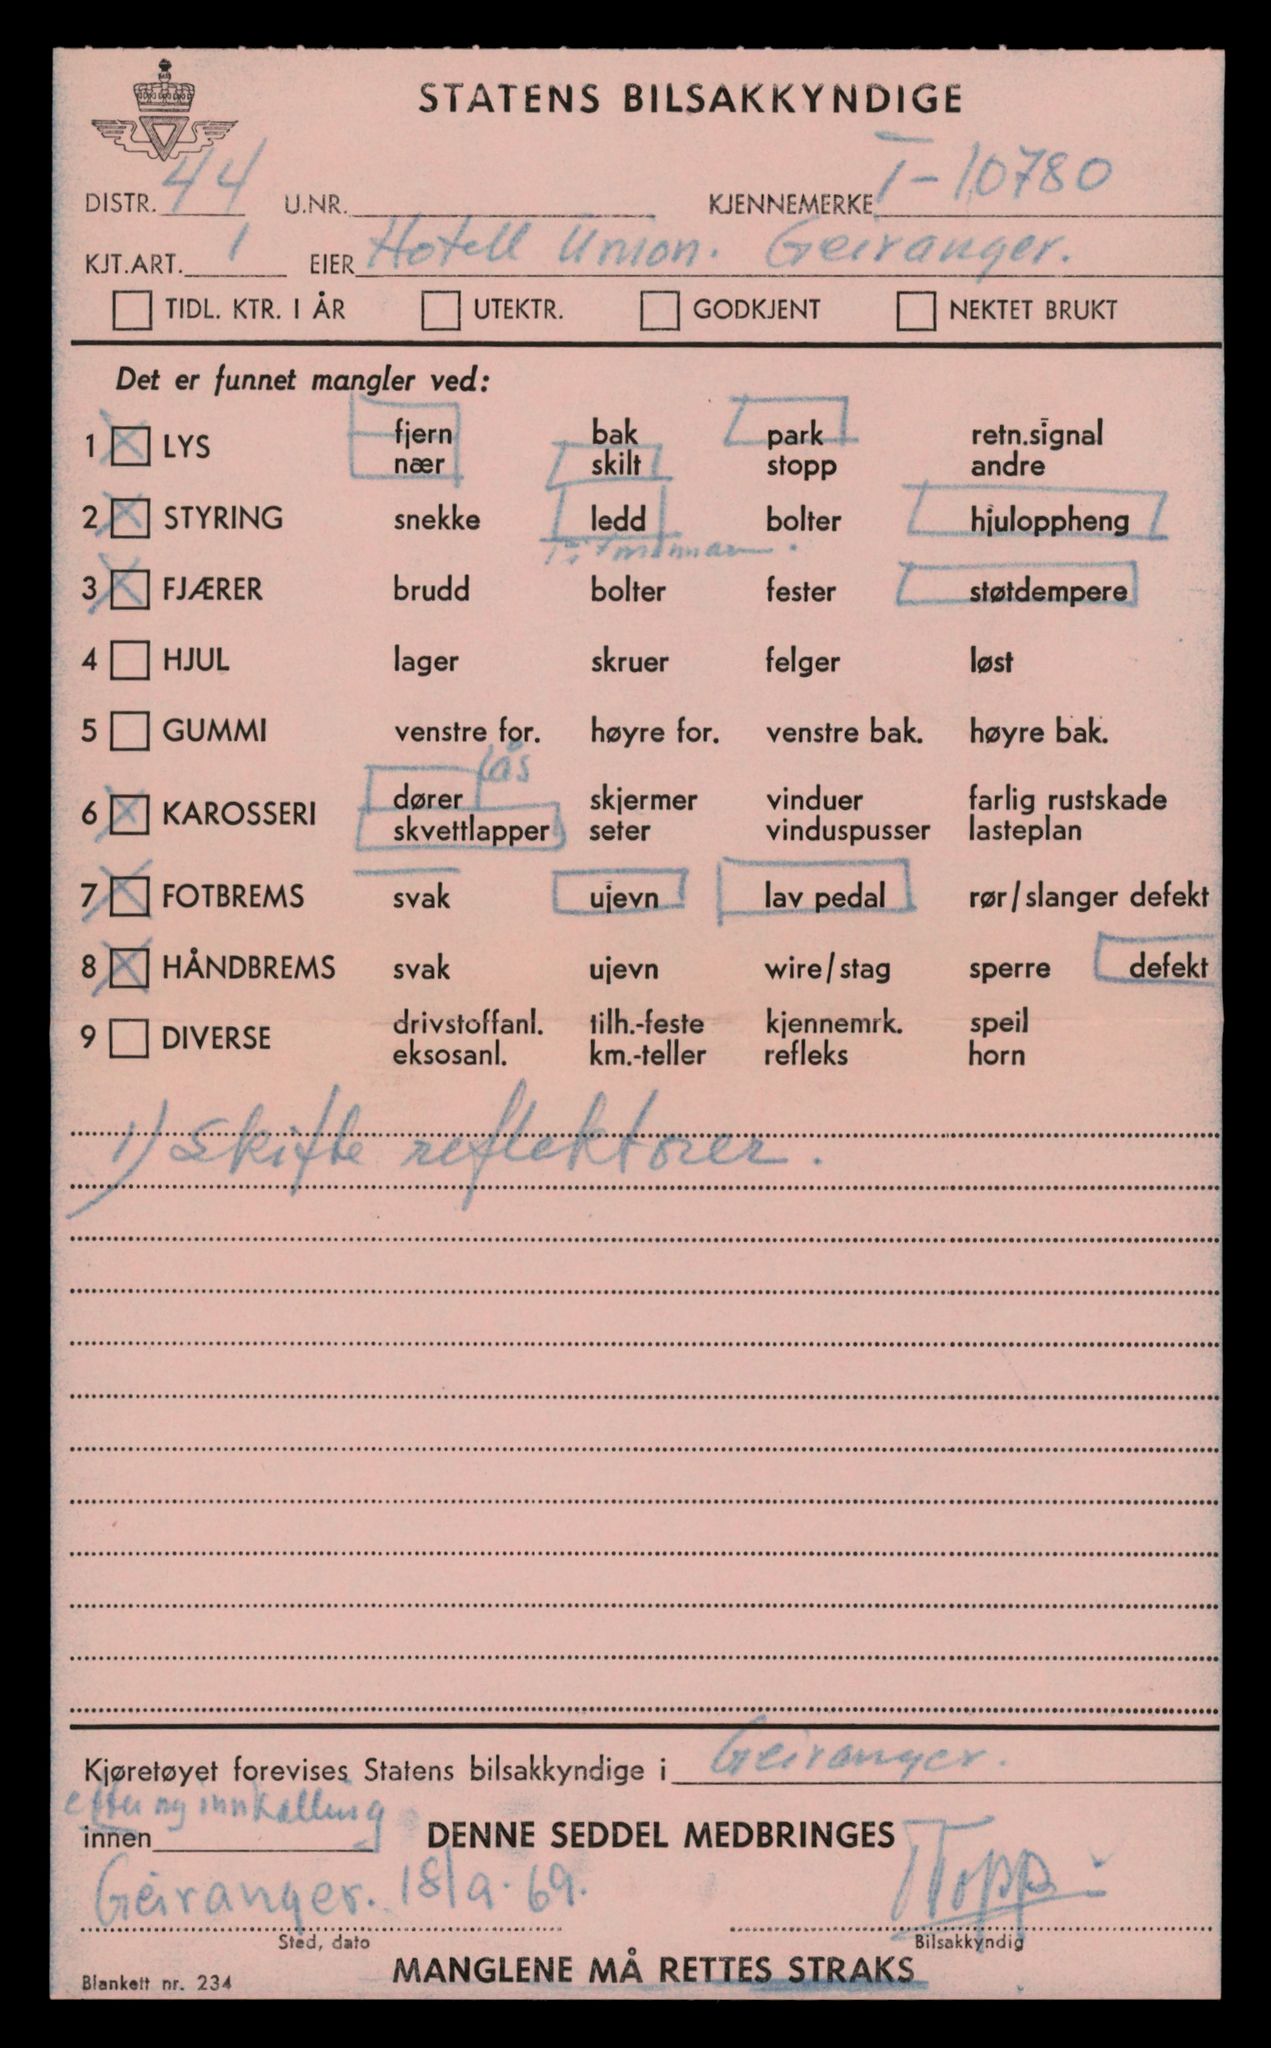 STATENS BILSAKKYNDIGE
DISTR. 44 U.NR. KJENNEMERKE T-10780
KJT.ART. 1 EIER Hotell Union. Geiranger.
TIDL. KTR. I ÅR UTEKTR. GODKJENT NEKTET BRUKT
Det er funnet mangler ved:
1 LYS fjern bak park retn.signal
nær skilt stopp andre
2 STYRING snekke ledd bolter hjuloppheng
3 FJÆRER brudd bolter fester støtdempere
4 HJUL lager skruer felger løst
5 GUMMI venstre for. høyre for. venstre bak. høyre bak.
lås
6 KAROSSERI dører skjermer vinduer farlig rustskade
skvettlapper seter vinduspusser lasteplan
7 FOTBREMS svak ujevn lav pedal rør/slanger defekt
8 HÅNDBREMS svak ujevn wire/stag sperre defekt
9 DIVERSE drivstoffanl. tilh.-feste kjennemrk. speil
eksosanl. km.-teller refleks horn
1) Skifte reflektorer.
Kjøretøyet forevises Statens bilsakkyndige i Geiranger.
efter ny innkalling
innen DENNE SEDDEL MEDBRINGES
Geiranger. 18/9.69.
Sted, dato Bilsakkyndig
Blankett nr. 234 MANGLENE MÅ RETTES STRAKS